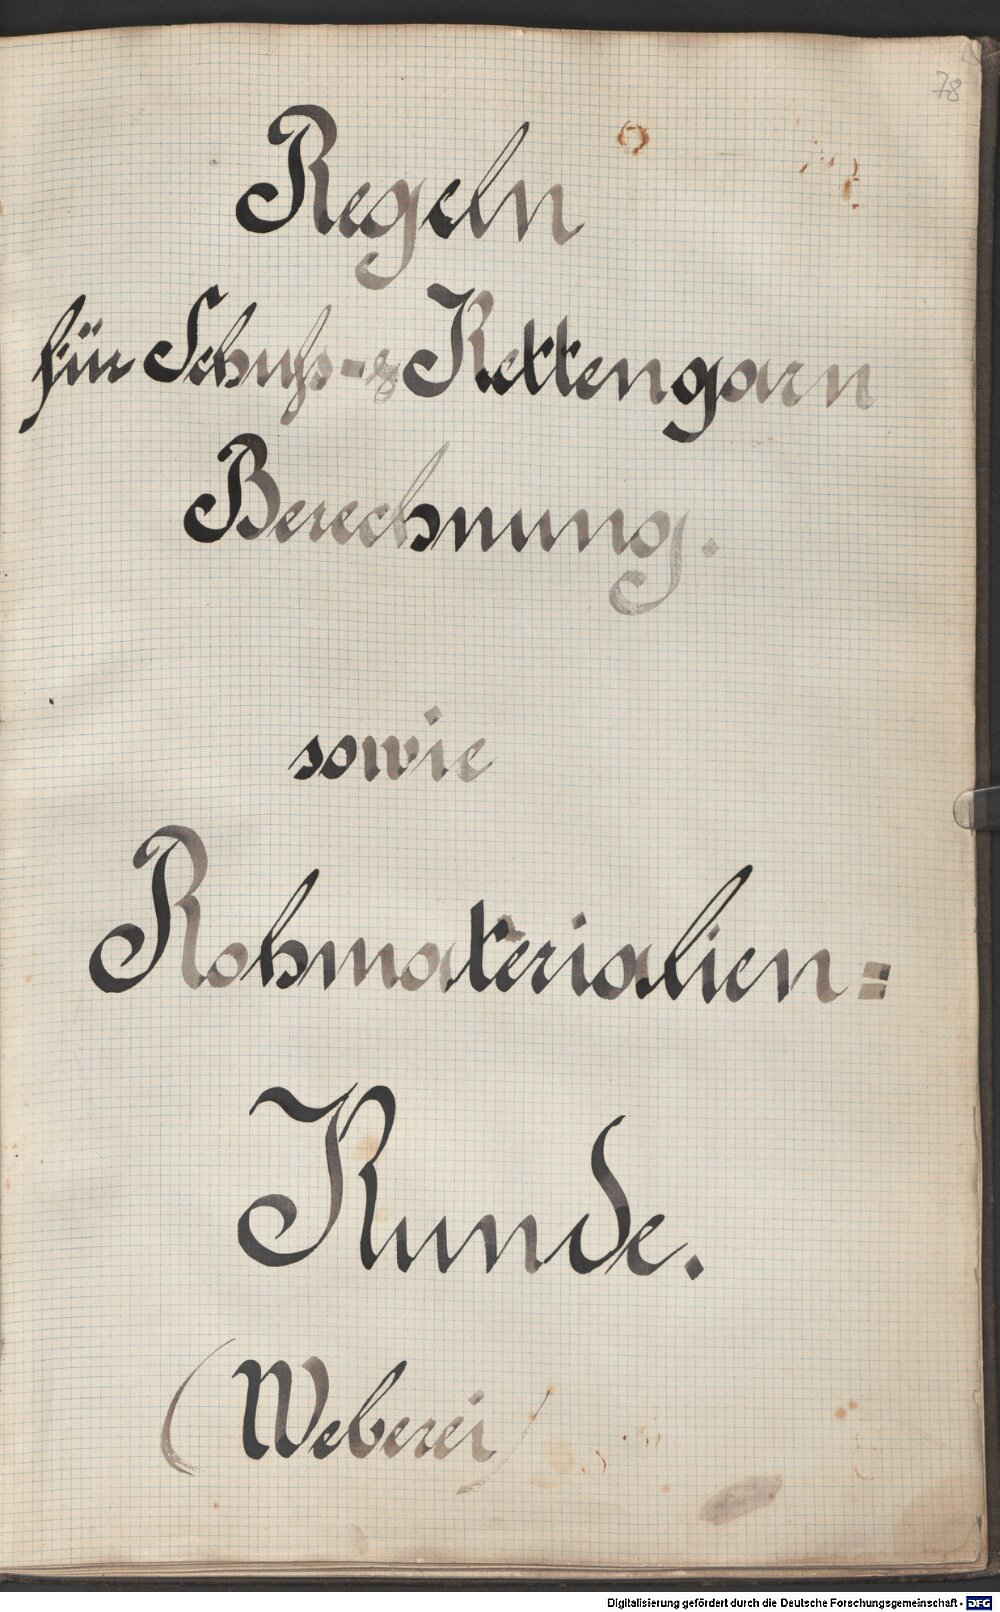 78
Regeln
für Schuß- & Kettengarn
Berechnung.
sowie
Rohmaterialien=
Kunde.
(Weberei)
Digitalisierung gefördert durch die Deutsche Forschungsgemeinschaft - DFG